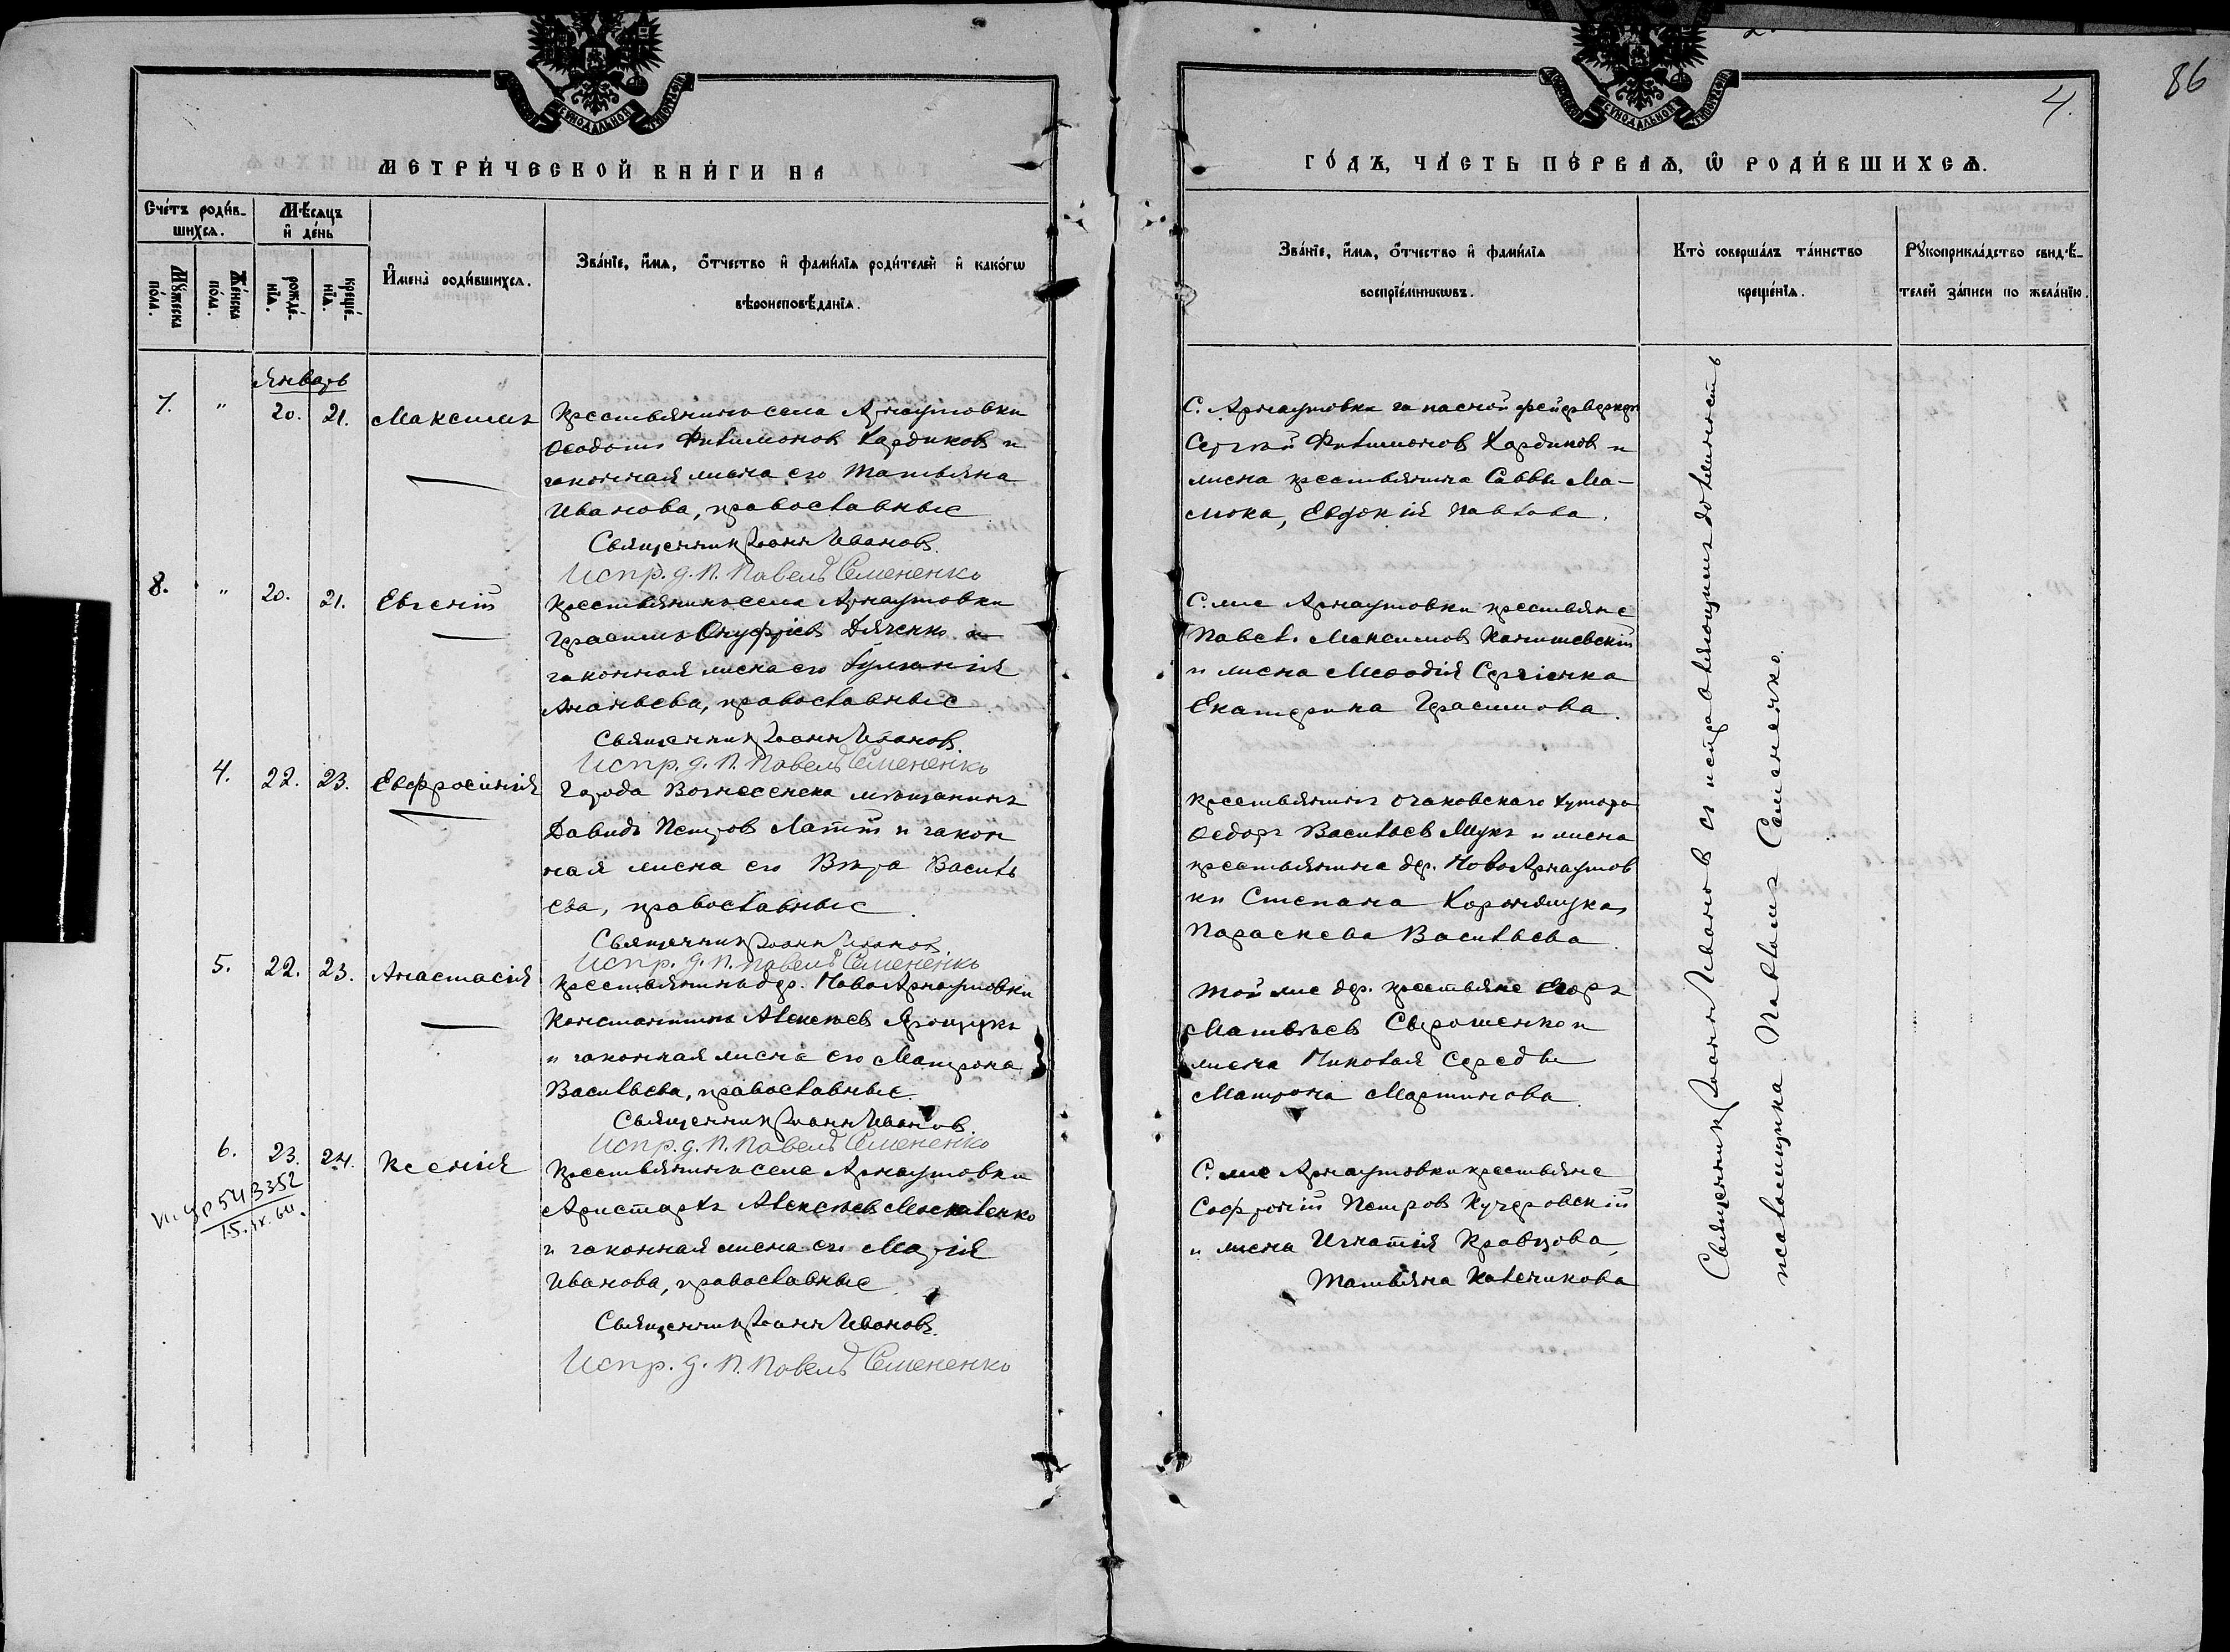 86
4.
МЕТРИ́ЧЕСКОЙ КНИ́ГИ НА
ГО́ДЪ, ЧА́СТЬ ПЕ́РВАѦ, Ѡ҆ РОДИ́ВШИХСѦ.
Сче́тъ роди́в-
шихсѧ.
Мѣ́сѧцъ
и҆ де́нь
Мꙋ́жеска
по́ла.
Же́нска
по́ла.
рожде́-
нїѧ.
креще́-
нїѧ.
И҆мена̀ роди́вшихсѧ.
Зва́нїе, и҆́мѧ, ѻ҆́тчество и҆ фами́лїѧ роди́телей и҆ како́гѡ
вѣроисповѣ́данїѧ.
Зва́нїе, и҆́мѧ, ѻ҆́тчество и҆ фами́лїѧ
воспрїе́мникѡвъ.
Кто̀ соверша́лъ та́инство
креще́нїѧ.
Рꙋкоприкла́дство свидѣ́-
телей за́писи по жела́нїю.
Январь
7. " 20. 21. Максимъ
Крестьянинъ села Арнаутовки
Ѳеодотъ Филимоновъ Кардиковъ и
законная жена его Татьяна
Иванова, православные
Священникъ Іоаннъ Ивановъ.
Испр. д. п. Павелъ Семененко
С. Арнаутовки запасной фейерверкеръ
Сергѣй Филимоновъ Кардиковъ и
жена крестьянина Саввы Ма-
мока, Евдокія Павлова.
8. " 20. 21. Евгеній
Крестьянинъ села Арнаутовки
Герасимъ Онуфріевъ Дяченко и
законная жена его
Ананьева, православные
Священникъ Іоаннъ Ивановъ.
Испр. д. п. Павелъ Семененко
С. же Арнаутовки крестьяне
Павелъ Максимовъ Каништевскій
и жена Меѳодія Сергіенка
Екатерина Герасимова.
4. 22. 23. Евфросинія
Города Вознесенска мѣщанинъ
Давидъ Петровъ Лаптій и закон
ная жена его Вѣра Василь
ева, православные
Священникъ Іоаннъ Ивановъ
Испр. д. п. Павелъ Семененко
Крестьянинъ Очаковскаго хутора
Ѳедоръ Васильевъ Мукъ и жена
крестьянина дер. НовоАрнаутов
ки Степана
Параскева Васильева
5. 22. 23. Анастасія
Крестьянинъ дер. НовоАрнаутовки
Константинъ Алексѣевъ Ярощукъ
и законная жена его Матрона
Васильева, православные.
Священникъ Іоаннъ Ивановъ.
Испр. д. п. Павелъ Семененко
Той же дер. крестьяне Егоръ
Матвѣевъ Сырошенко и
жена Николая Середы
Матрона Мартинова.
6. 23. 24. Ксенія
543352
15.IX.64.
Крестьянинъ села Арнаутовки
Аристархъ Алексѣевъ Москаленко
и законная жена его Марія
Иванова, православные
Священникъ Іоаннъ Ивановъ.
Испр. д. п. Павелъ Семененко
С. же Арнаутовки крестьяне
Софроній Петровъ Кучеровскій
и жена Игнатія Кравцова,
Татьяна Каленикова
Священникъ Іоаннъ Ивановъ съ исправляющимъ должность
псаломщика Павломъ Семененко.